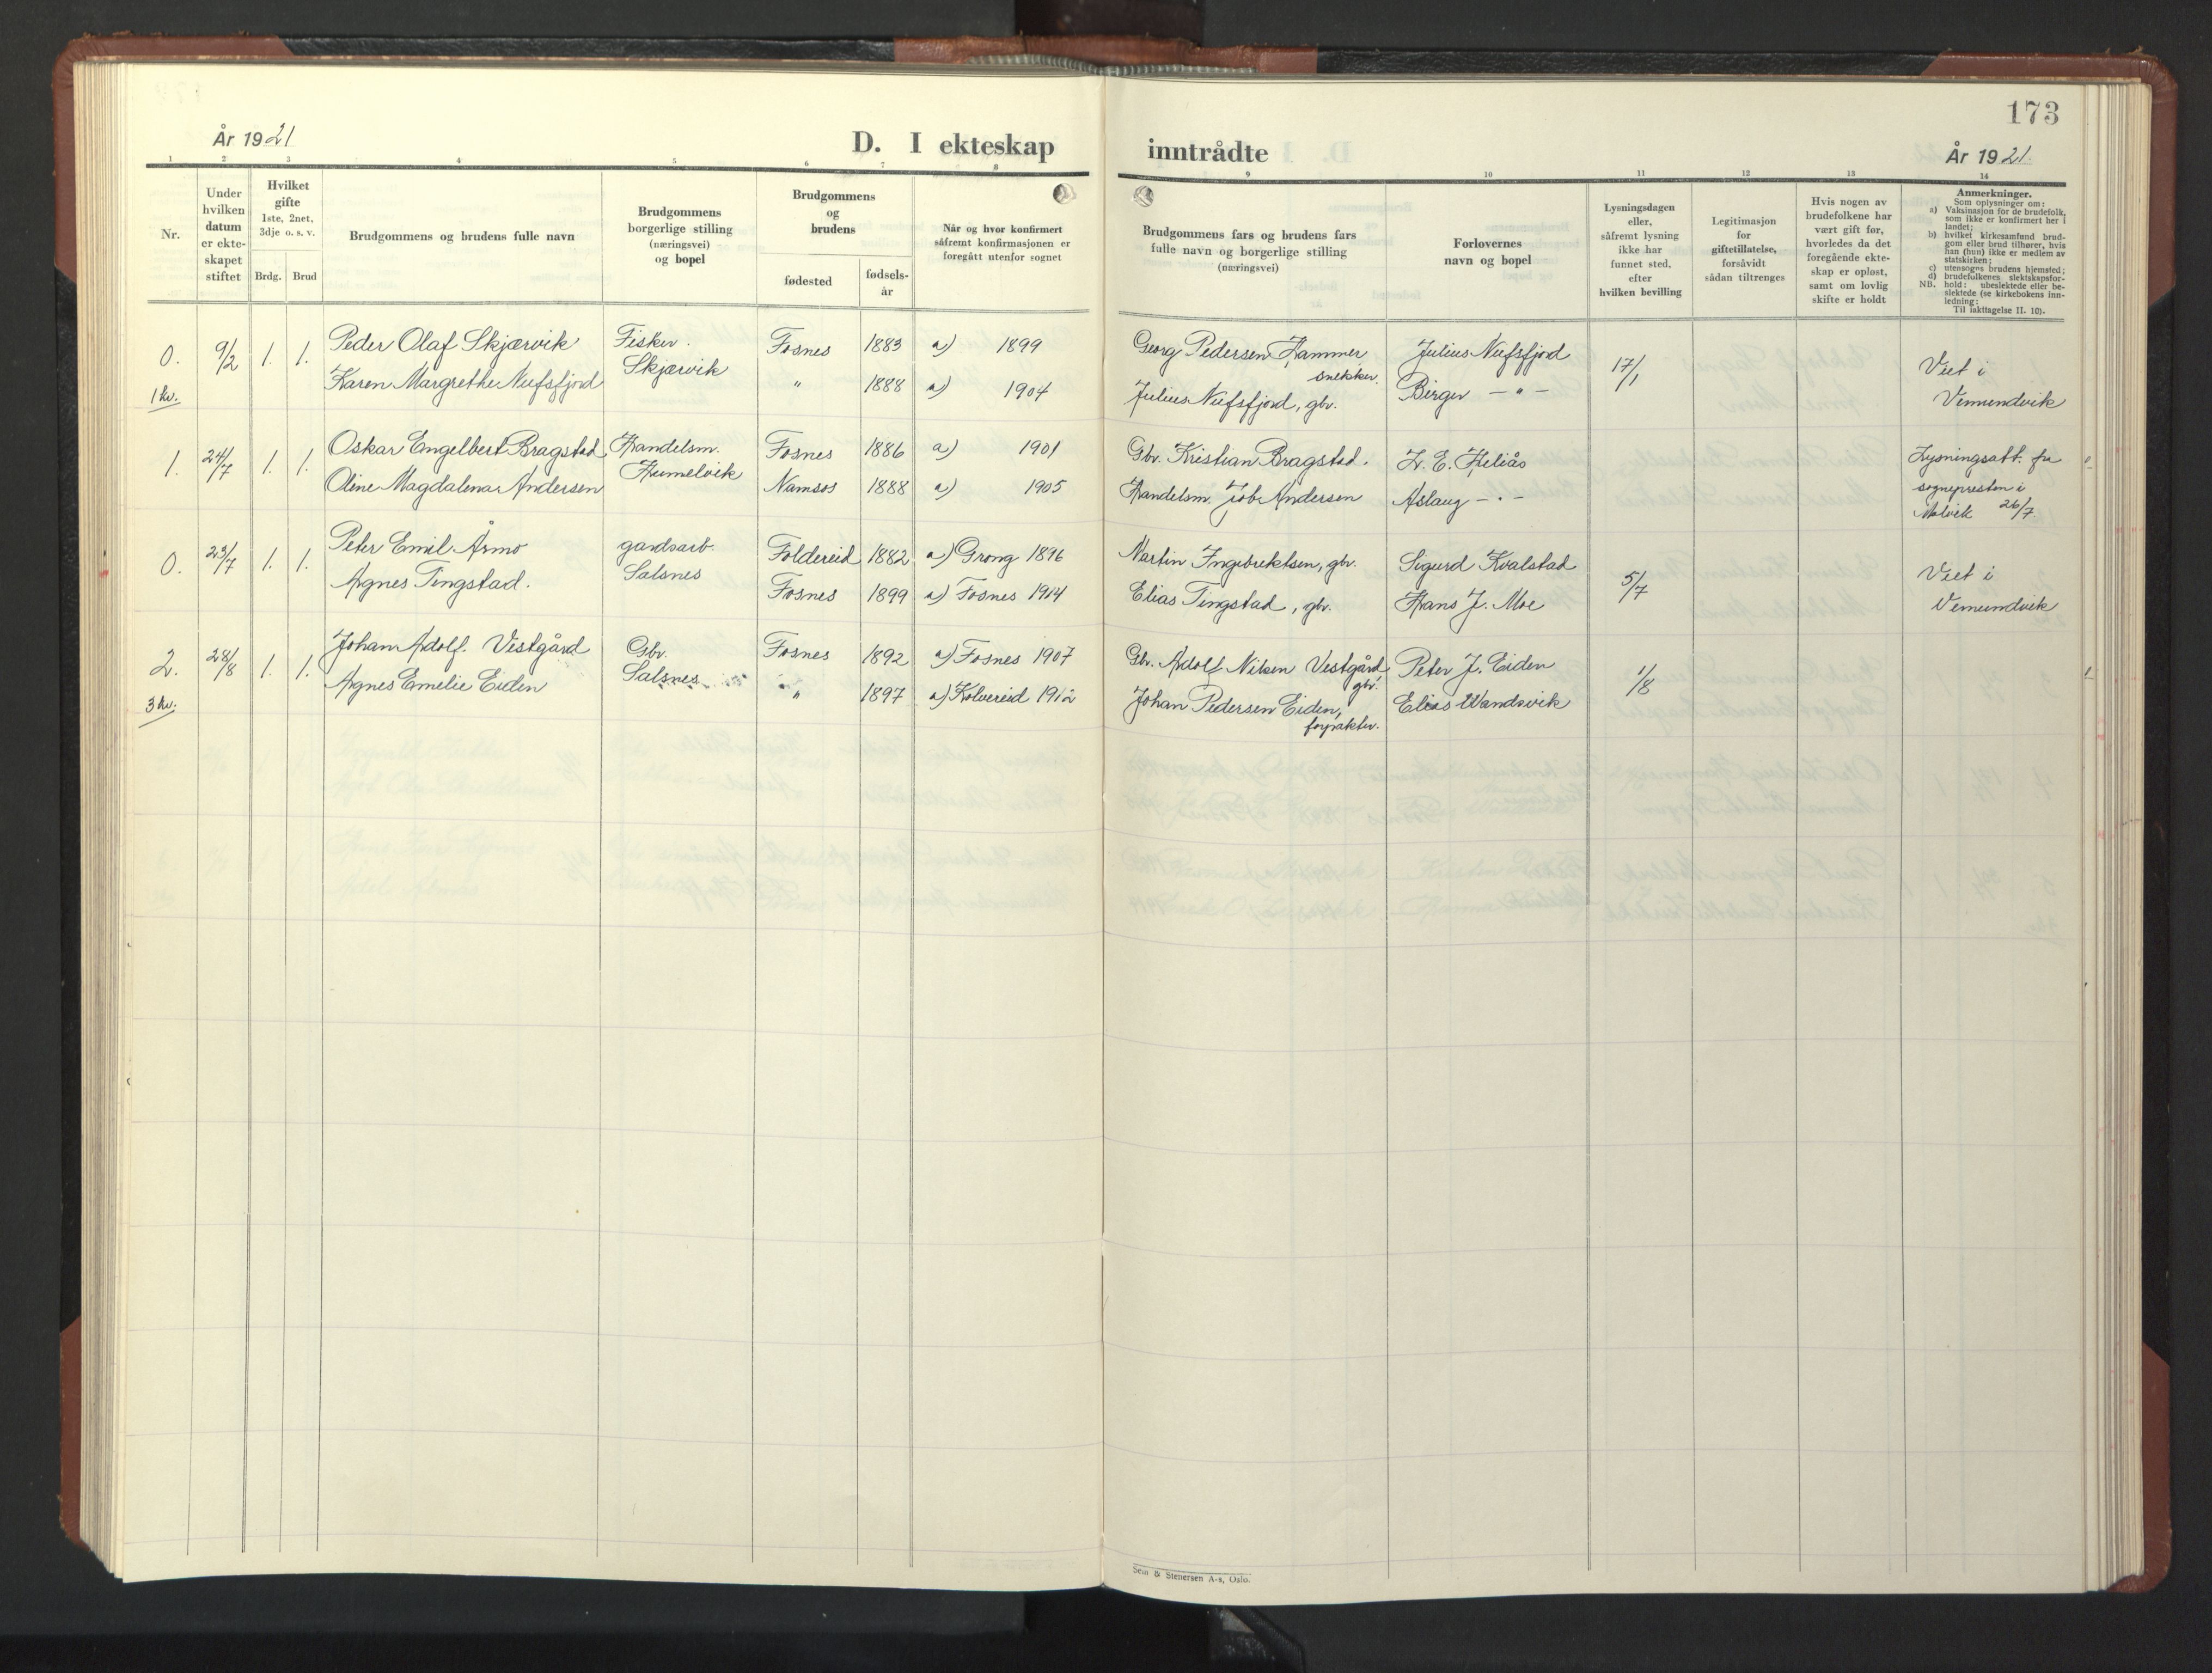 173
År 1921
D. I ekteskap
inntrådte
År 1921.
1 2 3 4 5 6 7 8
9 10 11 12 13 14
Nr.
Under
hvilken
datum
er ekte-
skapet
stiftet
Hvilket
gifte
1ste, 2net,
3dje o. s. v.
Brdg. Brud
Brudgommens og brudens fulle navn
Brudgommens
borgerlige stilling
(næringsvei)
og bopel
Brudgommens
og
brudens
fødested
fødsels-
år
Når og hvor konfirmert
såfremt konfirmasjonen er
foregått utenfor sognet
Brudgommens fars og brudens fars
fulle navn og borgerlige stilling
(næringsvei)
Forlovernes
navn og bopel
Lysningsdagen
eller,
såfremt lysning
ikke har
funnet sted,
efter
hvilken bevilling
Legitimasjon
for
giftetillatelse,
forsåvidt
sådan tiltrenges
Hvis nogen av
brudefolkene har
vært gift før,
hvorledes da det
foregående ekte-
skap er opløst,
samt om lovlig
skifte er holdt
Anmerkninger.
Som oplysninger om:
a) Vaksinasjon for de brudefolk,
som ikke er konfirmert her i
landet;
b) hvilket kirkesamfund brud-
gom eller brud tilhører, hvis
han (hun) ikke er medlem av
statskirken;
c) utensogns brudens hjemsted;
d) brudefolkenes slektskapsfor-
NB. hold: ubeslektede eller be-
slektede (se kirkebokens inn-
ledning:
Til iakttagelse II. 10).
0. 9/2 1. 1. Peder Olaf Skjærvik Fisker. Fosnes 1883 a) 1899 Georg Pedersen Hammer snekker. Julius Nufsfjord 17/1 Viet i
1 kv. Karen Margrethe Nufsfjord Skjærvik " 1888 a) 1904 Julius Nufsfjord, gbr. Birger - " - Vemundvik
1. 24/7 1. 1. Oskar Engelbert Bragstad Handelsm. Fosnes 1886 a) 1901 Gbr. Kristian Bragstad. L. E. Heliås Lysningsatt. fra
Oline Magdalena Andersen Humelvik Namsos 1888 a) 1905 Handelsm. Job Andersen Aslaug - " - sognepresten i
Malvik 26/7.
0. 23/7 1. 1. Peter Emil Åsmo gardsarb. Foldereid 1882 a) Grong 1896 Martin Ingebrektsen, gbr. Sigurd Kvalstad 5/7 Viet i
Agnes Tingstad. Salsnes Fosnes 1899 a) Fosnes 1914 Elias Tingstad, gbr. Hans J. Moe Vemundvik
2. 28/8 1. 1. Johan Adolf Vestgård Gbr. Fosnes 1892 a) Fosnes 1907 Gbr. Adolf Nilsen Vestgård gbr. Peter J. Eiden 1/8
3 kv. Agnes Emelie Eiden Salsnes " 1897 a) Kolvereid 1912 Johan Pedersen Eiden, forpakter. Elias Wandsvik
Sem & Stenersen A-s, Oslo.